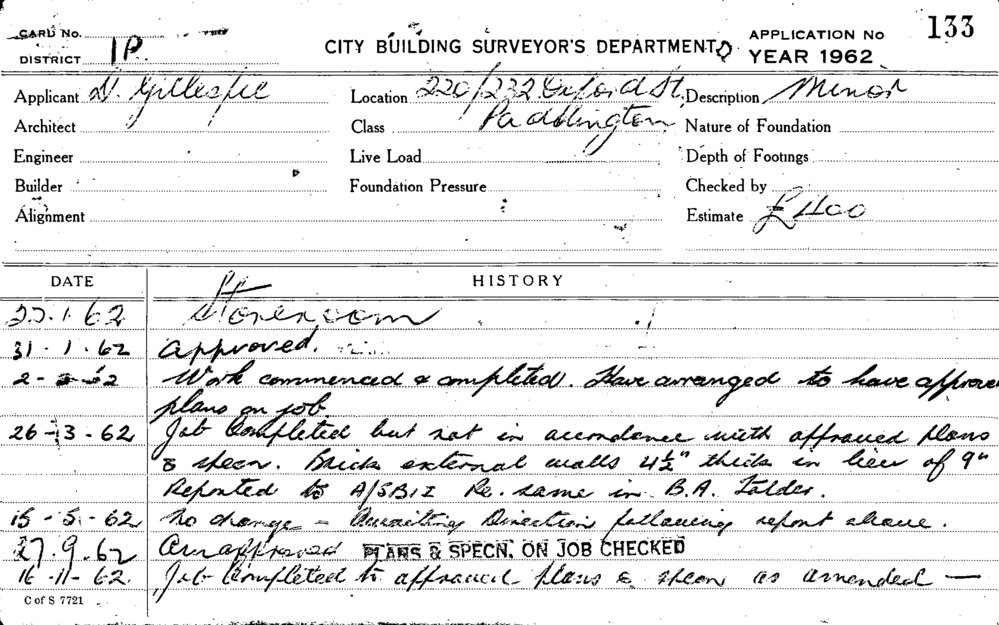 CARD No.
DISTRICT 1P.
CITY BUILDING SURVEYOR'S DEPARTMENT
APPLICATION No 133
YEAR 1962
Applicant D. Gillespie
Location 220/232 Oxford St,
Paddington
Description Minor
Architect
Class
Nature of Foundation
Engineer
Live Load
Depth of Footings
Builder
Foundation Pressure
Checked by
Alignment
Estimate £400
DATE HISTORY
.1.62 Storeroom
31-1.62 Approved.
2- Work commenced & completed. Have arranged to have approve
plans on job
26-3-62 Job Completed but not in accordance with approved plans
& specn. Brick external walls 4½" thick in lieu of 9"
Reported to A/SBI2 Re. same in B.A. Folder.
15-5-62 No change - Awaiting Direction following report above.
27.9.62 Am approved PLANS & SPECN. ON JOB CHECKED
16-11-62. Job Completed to approved plans & specn as amended —
C of S 7721